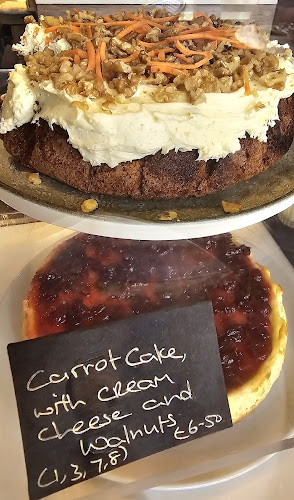 Carrot Cake,
with cream
cheese and
walnuts €6-50
(1,3,7,8)